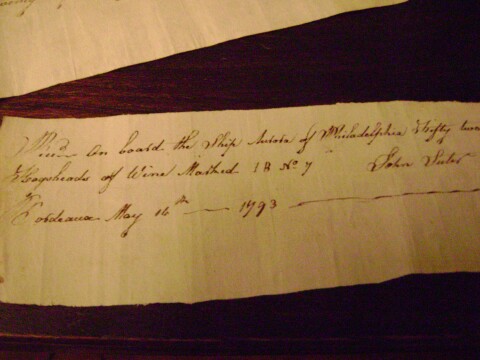 on board the Ship Aurora of Philadelphia Fifty
Hogsheads of Wine Marked I B No 7 John
Bordeaux May 16th — 1793